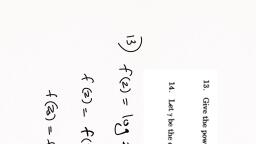 13. Give the pow
14. Let γ be the
13) f(z) = log
f(z) = f(
f(z) =